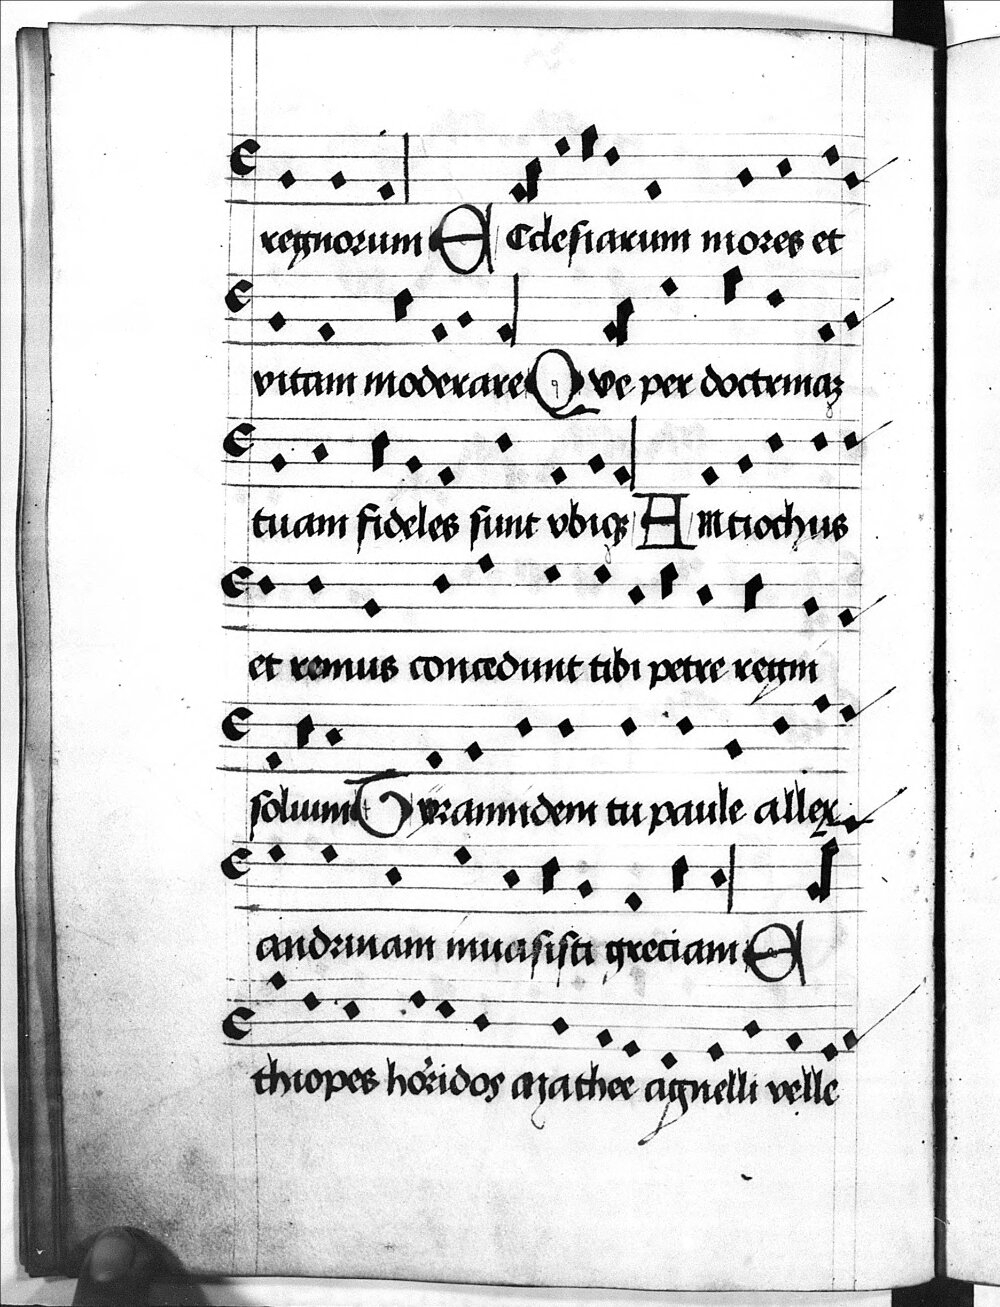 regnorum Ecclesiarum mores et
vitam moderare Que per doctrinaʒ
tuam fideles sunt vbiqʒ Antiochus
et remus concedunt tibi petre regni
solium Tyrannidem tu paule allex
andrinam inuasisti greciam E
thiopes horridos mathee agnelli velle